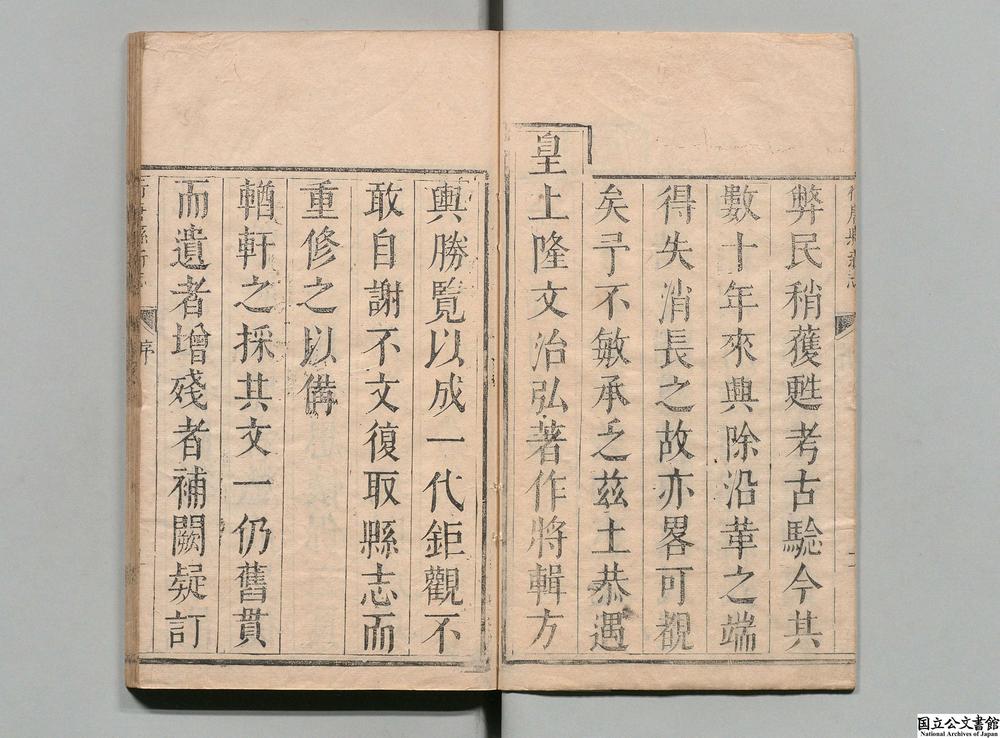 弊民稍蒦甦考古驗今其
數十年來興除沿革之端
得失消長之故亦畧可覩
矣予不敏承乏茲土恭遇
皇上隆文治弘著作將輯方
輿勝覧以成一代鉅觀不
敢自謝不文復取縣志而
重修之以備
輶軒之採其文一仍舊貫
而遺者增殘者補闕疑訂
行唐縣新志
序
国立公文書館
National Archives of Japan